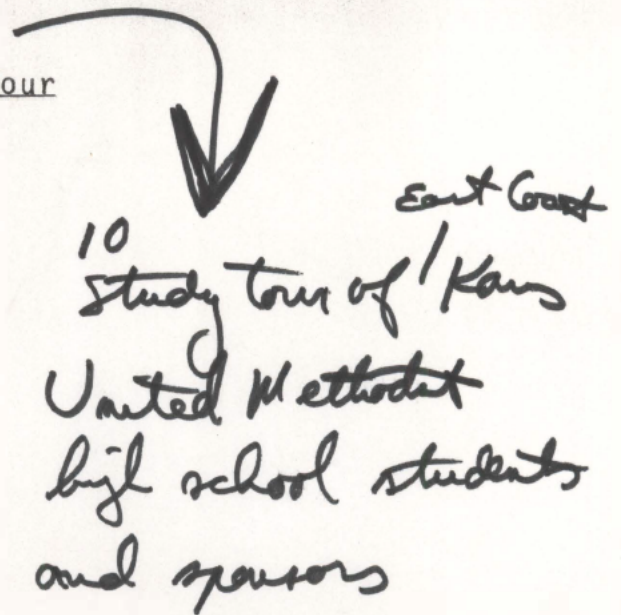 our
East Coast
10
Study tour of / Kans
United Methodist
high school students
and sponsors